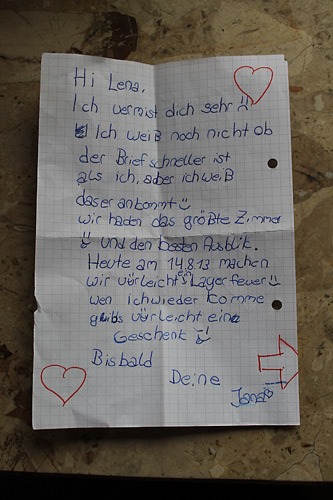 Hi Lena,
Ich vermist dich sehr
Ich weiß noch nicht ob
der Brief schneller ist
als ich, aber ich weiß
das er ankommt
wir haden das größte Zimmer
und den besten Ausblik.
Heute am 14.8.13 machen
wir vürleicht ein Lagerfeuer
wen ich wieder komme
gibs vürleicht eine
Geschenk
Bisbald
Deine
Jana